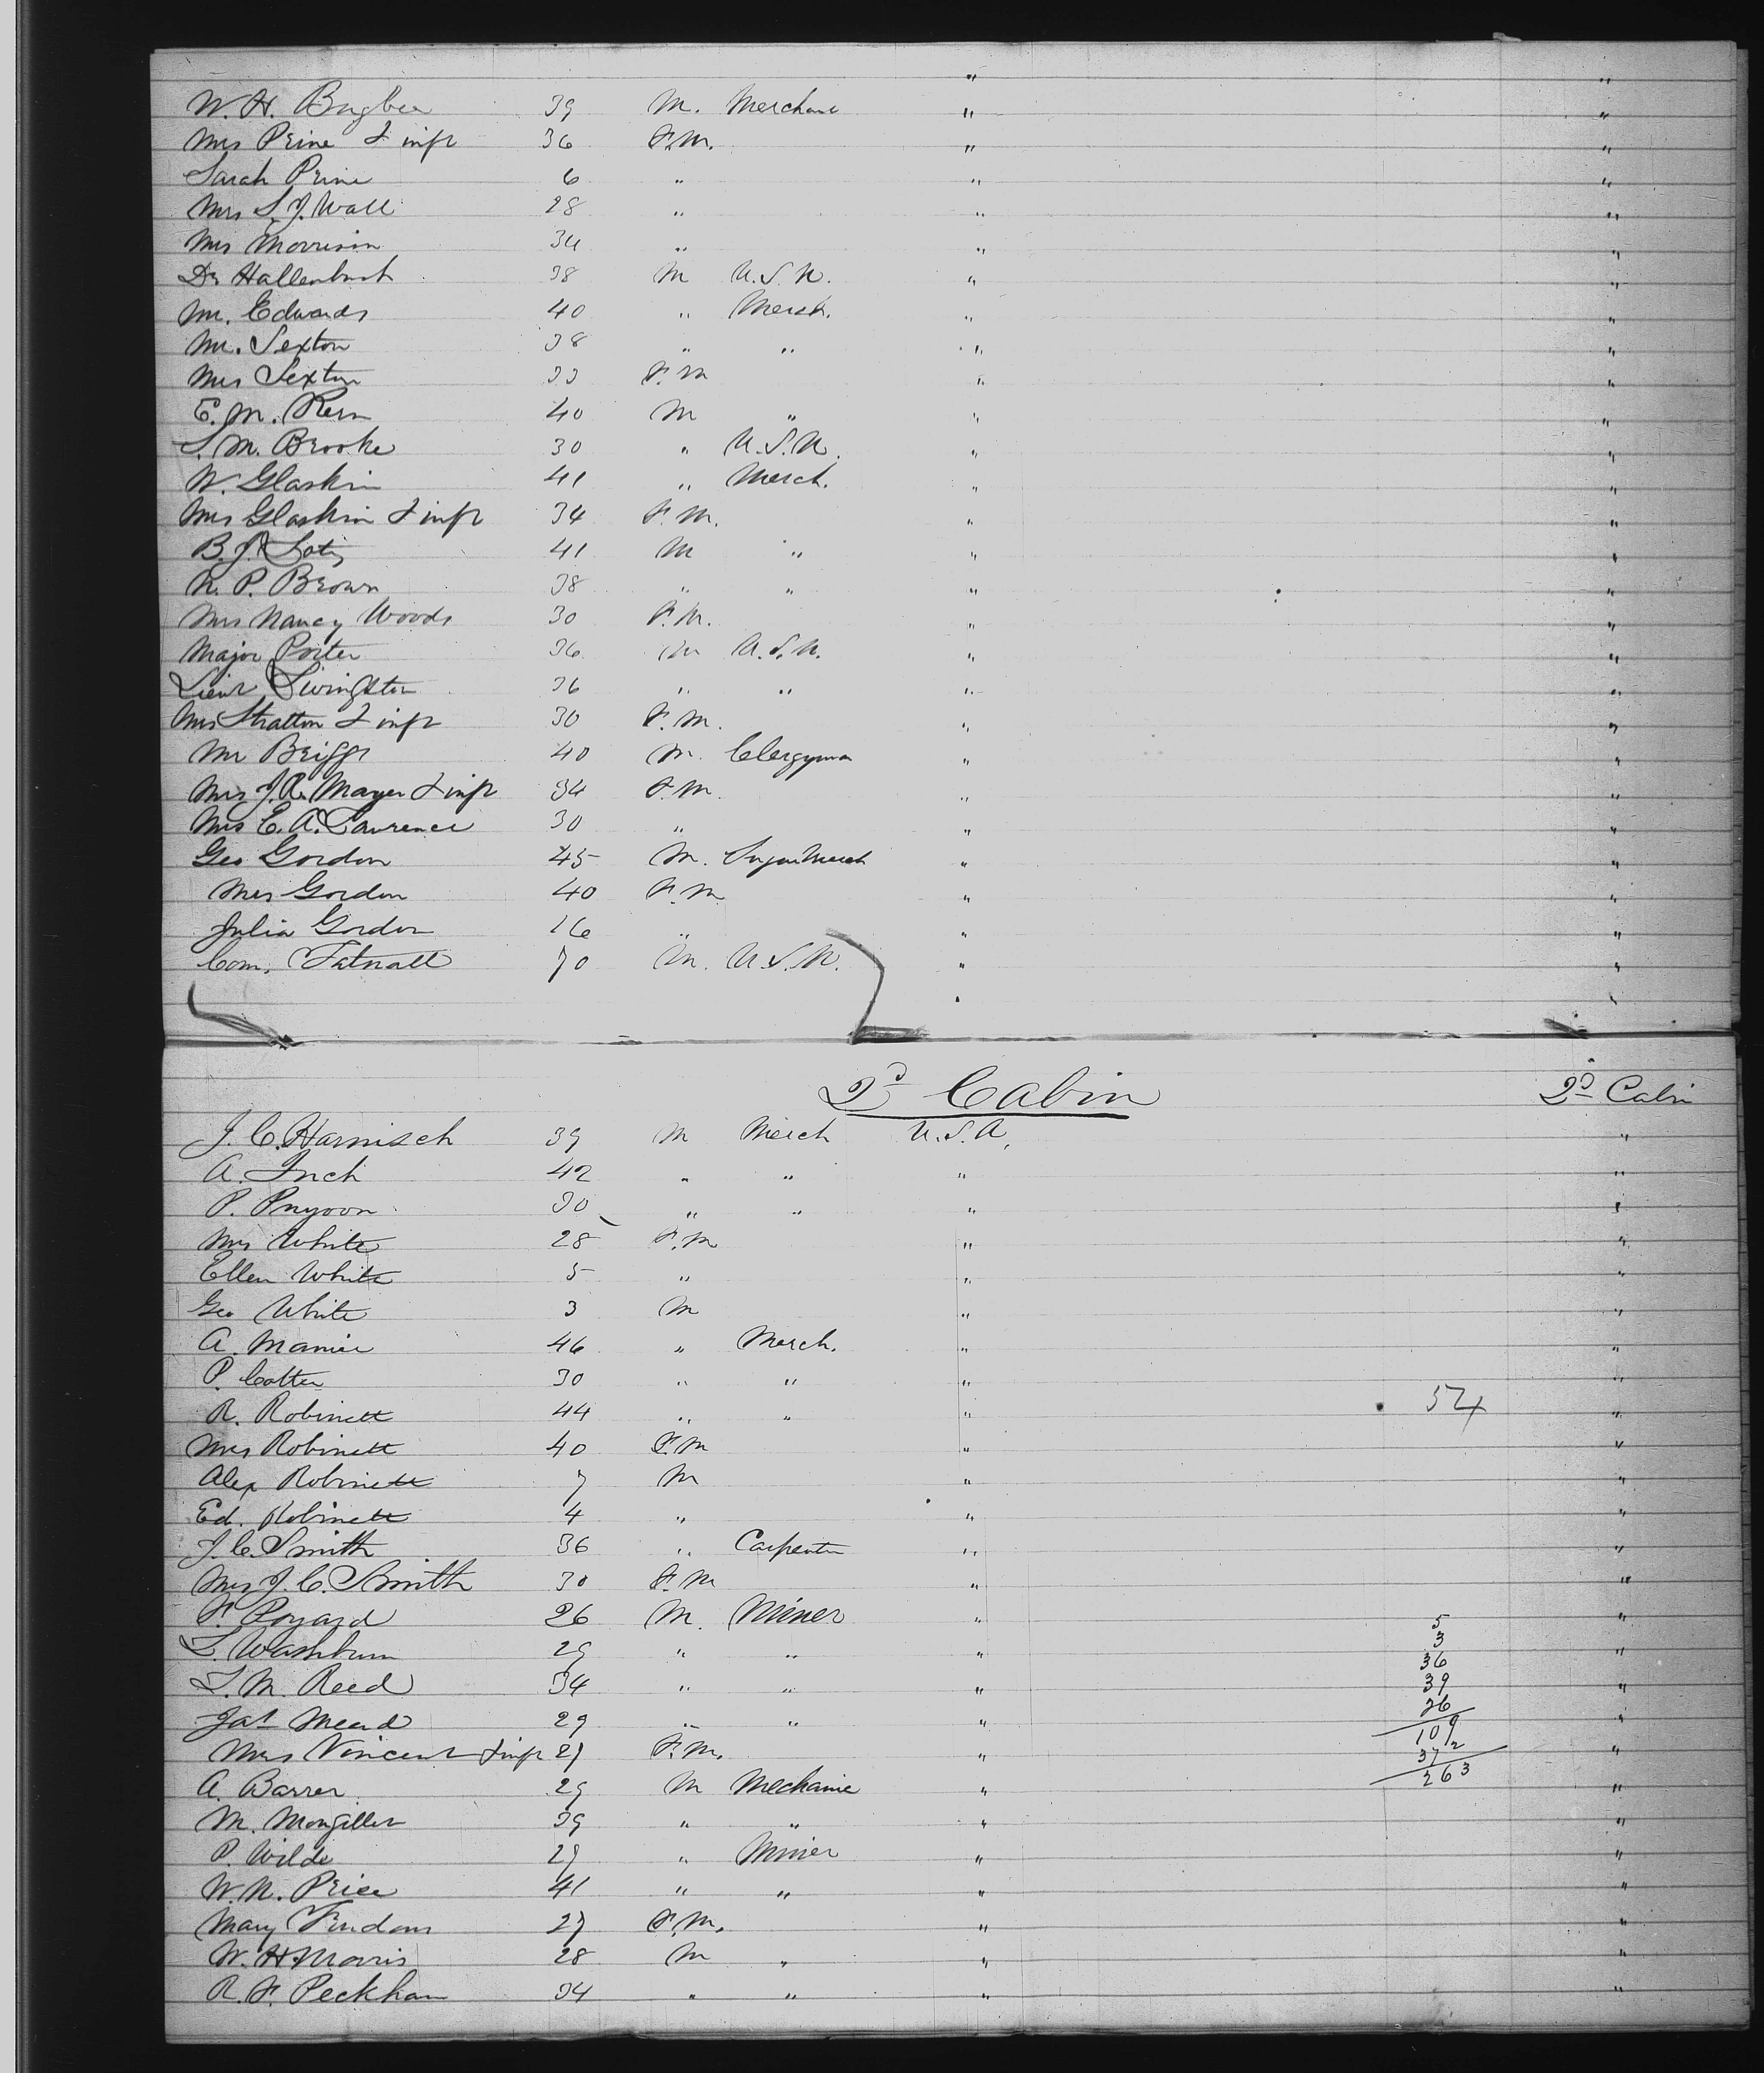 " "
W. H. Bugbee 39 M. Merchant " "
Mrs Prine & inft 36 F.M. " "
Sarah Prine 6 " " "
Mrs S. J. Wall 28 " " "
Mrs Morrison 34 " " "
Dr Hallenbush 38 M U.S.N. " "
Mr. Edwards 40 " Merch. " "
Mr. Sexton 38 " " " "
Mrs Sexton 33 F.M " "
E. M. Kern 40 M " " "
S. M. Brooke 30 " U.S.N. " "
W. Glaskin 41 " Merch. " "
Mrs Glaskin & inft 34 F.M. " "
B. J. 41 M " " "
R. P. Brown 38 " " " "
Mrs Nancy Woods 30 F.M. " "
Major Porter 36 M U.S.N. " "
Lieut Livingston 36 " " " "
Mrs Stratton & inft 30 F.M. " "
Mr Briggs 40 M. Clergyman " "
Mrs J. R. Mayer & inft 34 F.M. " "
Mrs E. A. Lawrence 30 " " "
Geo Gordon 45 M. Sugar Merch " "
Mrs Gordon 40 F.M " "
Julia Gordon 16 " " "
Com. Tatnall 70 M. U.S.N. " "
2d Cabin 2d Cabin
J. C. Harnisch 39 M Merch U.S.A. "
A. Inch 42 " " " "
P. Pnyoon 30 " " " "
Mrs White 28 F.M " "
Ellen White 5 " " "
Geo White 3 M " "
A. Manier 46 " Merch. " "
P. Cotter 30 " " " "
R. Robinett 44 " " " 54 "
Mrs Robinett 40 F.M " "
Alex Robinett 7 M " "
Ed. Robinett 4 " " "
J. C. Smith 36 " Carpenter " "
Mrs J. C. Smith 30 F.M " "
F. Poyard 26 M. Miner " 5 "
L. Washburn 29 " " " 3 "
S. M. Reed 34 " " " 36 39 "
Jas Mead 29 " " " 26 "
Mrs Vincent & inft 27 F.M. " 109 372 "
A. Barrer 29 M Mechanic " 263 "
M. Mongiller 39 " " " "
P. Wilde 29 " Miner " "
W. N. Price 41 " " " "
Mary Findom 27 F.M. " "
W. H. Morris 28 M " " "
R. F. Peckham 34 " " " "